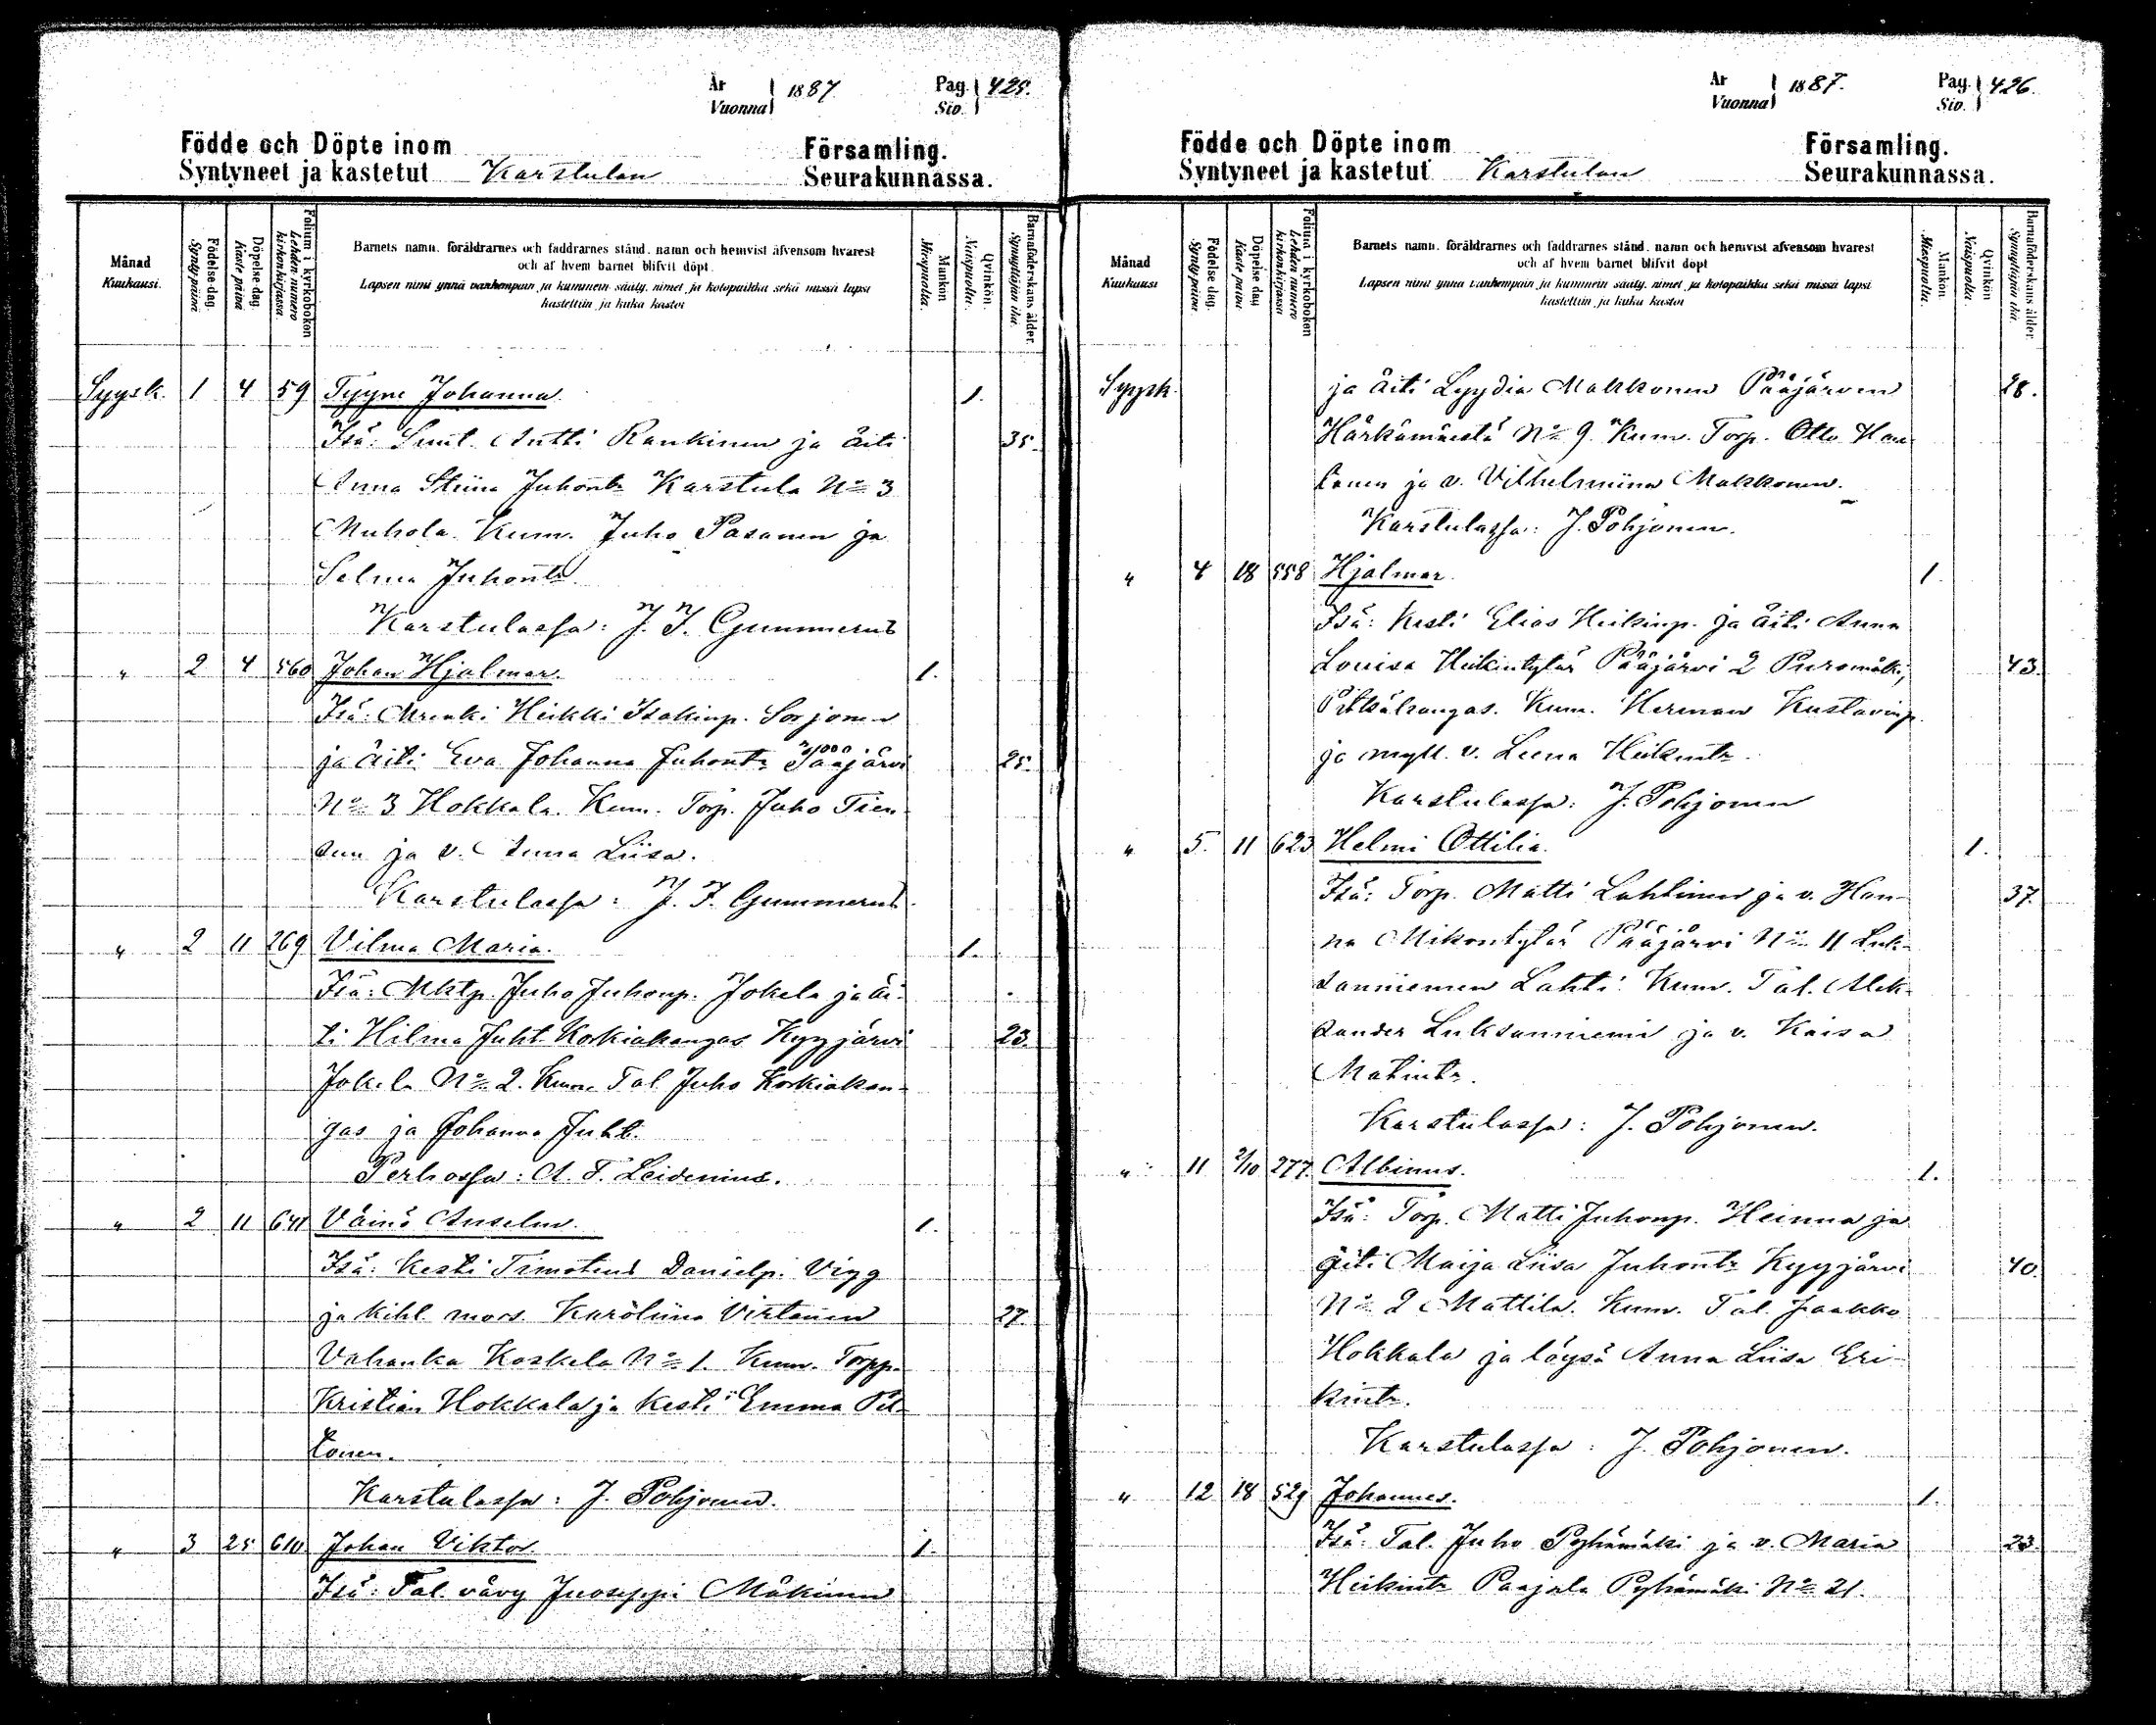 År Vuonna 1887. Pag. Siv. 425.
Födde och Döpte inom Församling.
Syntyneet ja kastetut Karstulan Seurakunnassa.
Månad Kuukausi.
Födelse-dag. Synty päivä
Döpelse-dag Kaste päivä
Folium i kyrkoboken Lehden numero kirkonkirjassa
Barnets namn, föräldrarnes och faddrarnes stånd, namn och hemvist äfvensom hvarest
och af hvem barnet blifvit döpt.
Lapsen nimi ynnä vanhempain ja kummein sääty, nimet ja kotopaikka sekä missä lapsi
kastettiin ja kuka kastoi
Mankön Miespuolta.
Qvinkön. Naispuolta.
Barnaföderskans ålder. Synnyttäjän ikä.
Syysk. 1 4 59 Tyyne Johanna. 1.
Isä: Suut. Antti Rankinen ja äiti 35.
Anna Stiina Juhontr Karstula No 3
Muhola. Kum. Juho Pasanen ja
Selma Juhontr.
Karstulassa: J. J. Gummerus
" 2 4 560 Johan Hjalmar. 1.
Isä: Heikki Isakinp. Sorjonen
ja äiti Eva Johanna Juhontr Pääjärvi 25.
No 3 Hokkala. Kum. Torp. Juho Tien-
suu ja v. Anna Liisa.
Karstulassa: J. J. Gummerus.
" 2 11 269 Vilma Maria. 1.
Isä: Mktp. Juho Juhonp. Jokela ja äi-
ti Hilma Juht. Korkiakangas Kyyjärvi 23.
Jokela No 2. Kum. Tal. Juho Korkiakan-
gas ja Johanna Juht.
Perhossa: A. F. Leidenius.
" 2 11 641 Väinö Anselm. 1.
Isä: Kesti Timoteus Danielp. Vigg
ja kihl. mors. Karoliina Virtanen 27.
Vahanka Koskela No 1. Kum. Torpp.
Kristian Hokkala ja kesti Emma Pel-
tonen.
Karstulassa: J. Pohjonen.
" 3 25 610 Johan Viktor. 1.
Isä: Tal. vävy Juoseppi Mäkinen
År Vuonna 1887. Pag. Siv. 426.
Födde och Döpte inom Församling.
Syntyneet ja kastetut Karstulan Seurakunnassa.
Månad Kuukausi
Födelse dag. Synty päivä.
Döpelse dag Kaste päivä
Folium i kyrkoboken Lehden numero kirkonkirjassa
Barnets namn, föräldrarnes och faddrarnes stånd, namn och hemvist äfvensom hvarest
och af hvem barnet blifvit döpt
Lapsen nimi ynnä vanhempain ja kummein sääty, nimet ja kotopaikka sekä missä lapsi
kastettiin ja kuka kastoi
Mankön. Miespuolta.
Qvinkön Naispuolta.
Barnaföderskans ålder. Synnyttäjän ikä.
Syysk. ja äiti Lyydia Makkonen Pääjärven 28.
Härkämäestä No 9. Kum. Torp. Otto Hau-
tanen ja v. Vilhelmiina Makkonen.
Karstulassa: J. Pohjonen.
" 4 18 558 Hjalmar. 1.
Isä: Kesti Elias Heikinp. ja äiti Anna
Lovisa Heikintytär Pääjärvi 2 Puromäki, 43.
Kum. Herman Kustavinp.
ja mytt. v. Leena Heikintr.
Karstulassa: J. Pohjonen
" 5. 11 623 Helmi Ottilia. 1.
Isä: Torp. Matti Lahtinen ja v. Han- 37.
na Mikontytär Pääjärvi No 11 Luk-
sanniemen Lahti. Kum. Tal. Alek-
sander Luksanniemi ja v. Kaisa
Matintr.
Karstulassa: J. Pohjonen.
" 11 2/10 277. Albinus. 1.
Isä: Torp. Matti Juhonp. Heinua ja
äiti Maija Liisa Juhontr Kyyjärvi 40.
No 2 Mattila. Kum. Tal. Jaakko
Hokkala ja löysä Anna Liisa Eri-
kintr.
Karstulassa: J. Pohjonen.
" 12 18 529 Johannes. 1.
Isä: Tal. Juho Pyhämäki ja v. Maria 23.
Heikintr Paajala Pyhämäki No 21.